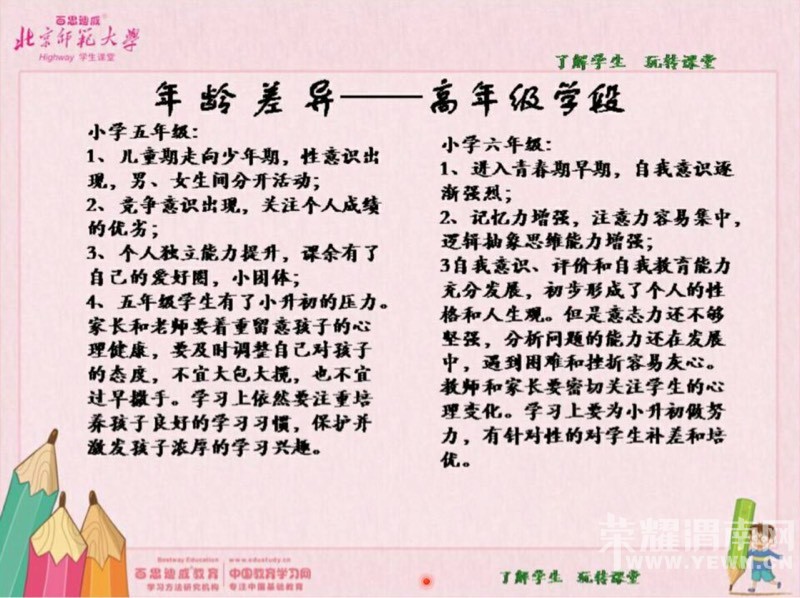 百思迪威®
北京师范大学
Highway 学生课堂
了解学生 玩转课堂
年龄差异——高年级学段
小学五年级：
1、儿童期走向少年期，性意识出
现，男、女生间分开活动；
2、竞争意识出现，关注个人成绩
的优劣；
3、个人独立能力提升，课余有了
自己的爱好圈，小团体；
4、五年级学生有了小升初的压力。
家长和老师要着重留意孩子的心
理健康，要及时调整自己对孩子
的态度，不宜大包大揽，也不宜
过早撒手。学习上依然要注重培
养孩子良好的学习习惯，保护并
激发孩子浓厚的学习兴趣。
小学六年级：
1、进入青春期早期，自我意识逐
渐强烈；
2、记忆力增强，注意力容易集中，
逻辑抽象思维能力增强；
3自我意识、评价和自我教育能力
充分发展，初步形成了个人的性
格和人生观。但是意志力还不够
坚强，分析问题的能力还在发展
中，遇到困难和挫折容易灰心。
教师和家长要密切关注学生的心
理变化。学习上要为小升初做努
力，有针对性的对学生补差和培
优。
Bestway Education
百思迪威教育
学习方法研究机构
www.edustudy.cn
中国教育学习网
专注中国基础教育
了解学生 玩转课堂
荣耀渭南网
WWW.YEWN.CN